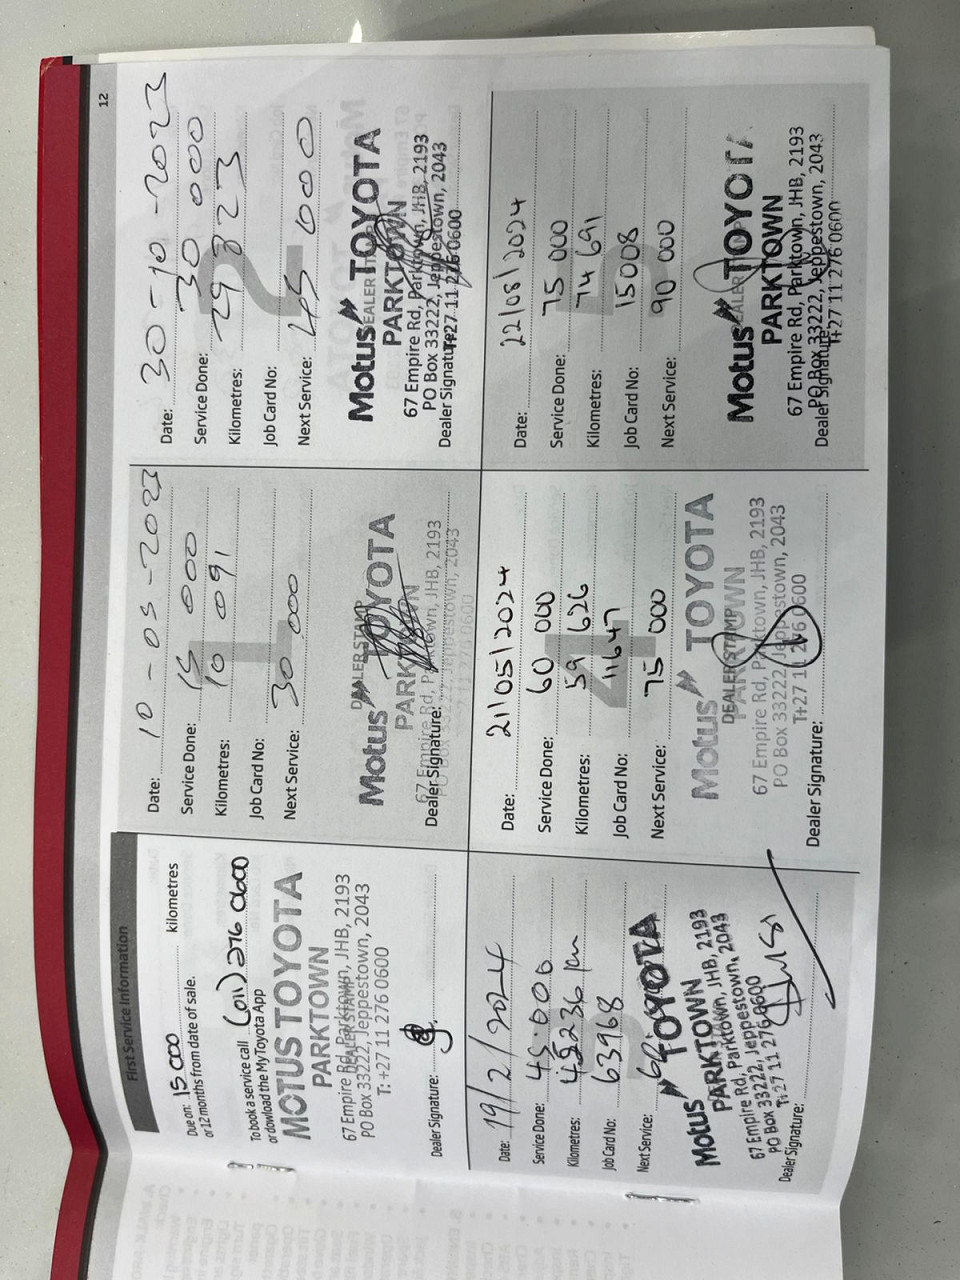 12
First Service Information
Due on: 15 000 kilometres
or 12 months from date of sale.
To book a service call (011) 276 0600
or dowload the MyToyota App
MOTUS TOYOTA
PARKTOWN
67 Empire Rd, Parktown, JHB, 2193
DEALER STAMP
PO Box 33222, Jeppestown, 2043
T: +27 11 276 0600
Dealer Signature:
1
Date: 10-05-2023
Service Done: 15 000
Kilometres: 10 091
Job Card No:
Next Service: 30 000
DEALER STAMP
Motus TOYOTA
PARKTOWN
67 Empire Rd, Parktown, JHB, 2193
PO Box 33222, Jeppestown, 2043
11 276 0600
Dealer Signature:
2
Date: 30-10-2023
Service Done: 30 000
Kilometres: 29 823
Job Card No:
Next Service: 45 000
Motus TOYOTA
DEALER
PARKTOWN
67 Empire Rd, Parktown, JHB, 2193
PO Box 33222, Jeppestown, 2043
T+27 11 276 0600
Dealer Signature:
Date: 19/2/2024
Service Done: 45.000
Kilometres: 45236 km
Job Card No: 63968
Next Service:
Motus TOYOTA
PARKTOWN
67 Empire Rd, Parktown, JHB, 2193
PO Box 33222, Jeppestown, 2043
T+27 11 276 0600
Dealer Signature:
4
Date: 21/05/2024
Service Done: 60 000
Kilometres: 59 626
Job Card No: 11647
Next Service: 75 000
Motus TOYOTA
DEALER STAMP
PARKTOWN
67 Empire Rd, Parktown, JHB, 2193
PO Box 33222, Jeppestown, 2043
T+27 11 276 0600
Dealer Signature:
5
Date: 22/08/2024
Service Done: 75 000
Kilometres: 74 691
Job Card No: 15008
Next Service: 90 000
Motus TOYOTA
DEALER
PARKTOWN
67 Empire Rd, Parktown, JHB, 2193
PO Box 33222, Jeppestown, 2043
T+27 11 276 0600
Dealer Signature